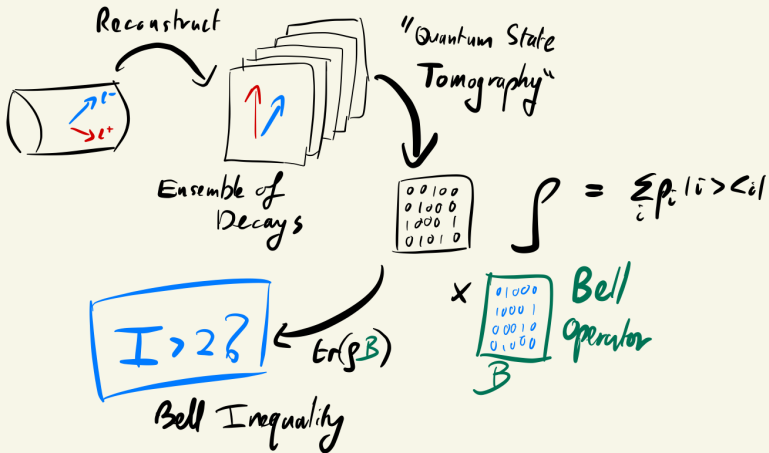 Reconstruct
"Quantum State
Tomography"
e-
e+
Ensemble of
Decays
0 0 1 0 0
0 1 0 0 0
1 0 0 0 1
0 1 0 1 0
ρ = Σ_i p_i |i><i|
x
0 1 0 0 0
1 0 0 0 1
0 0 0 1 0
0 1 0 0 0
Bell
Operator
B
I > 2?
tr(ρB)
Bell Inequality